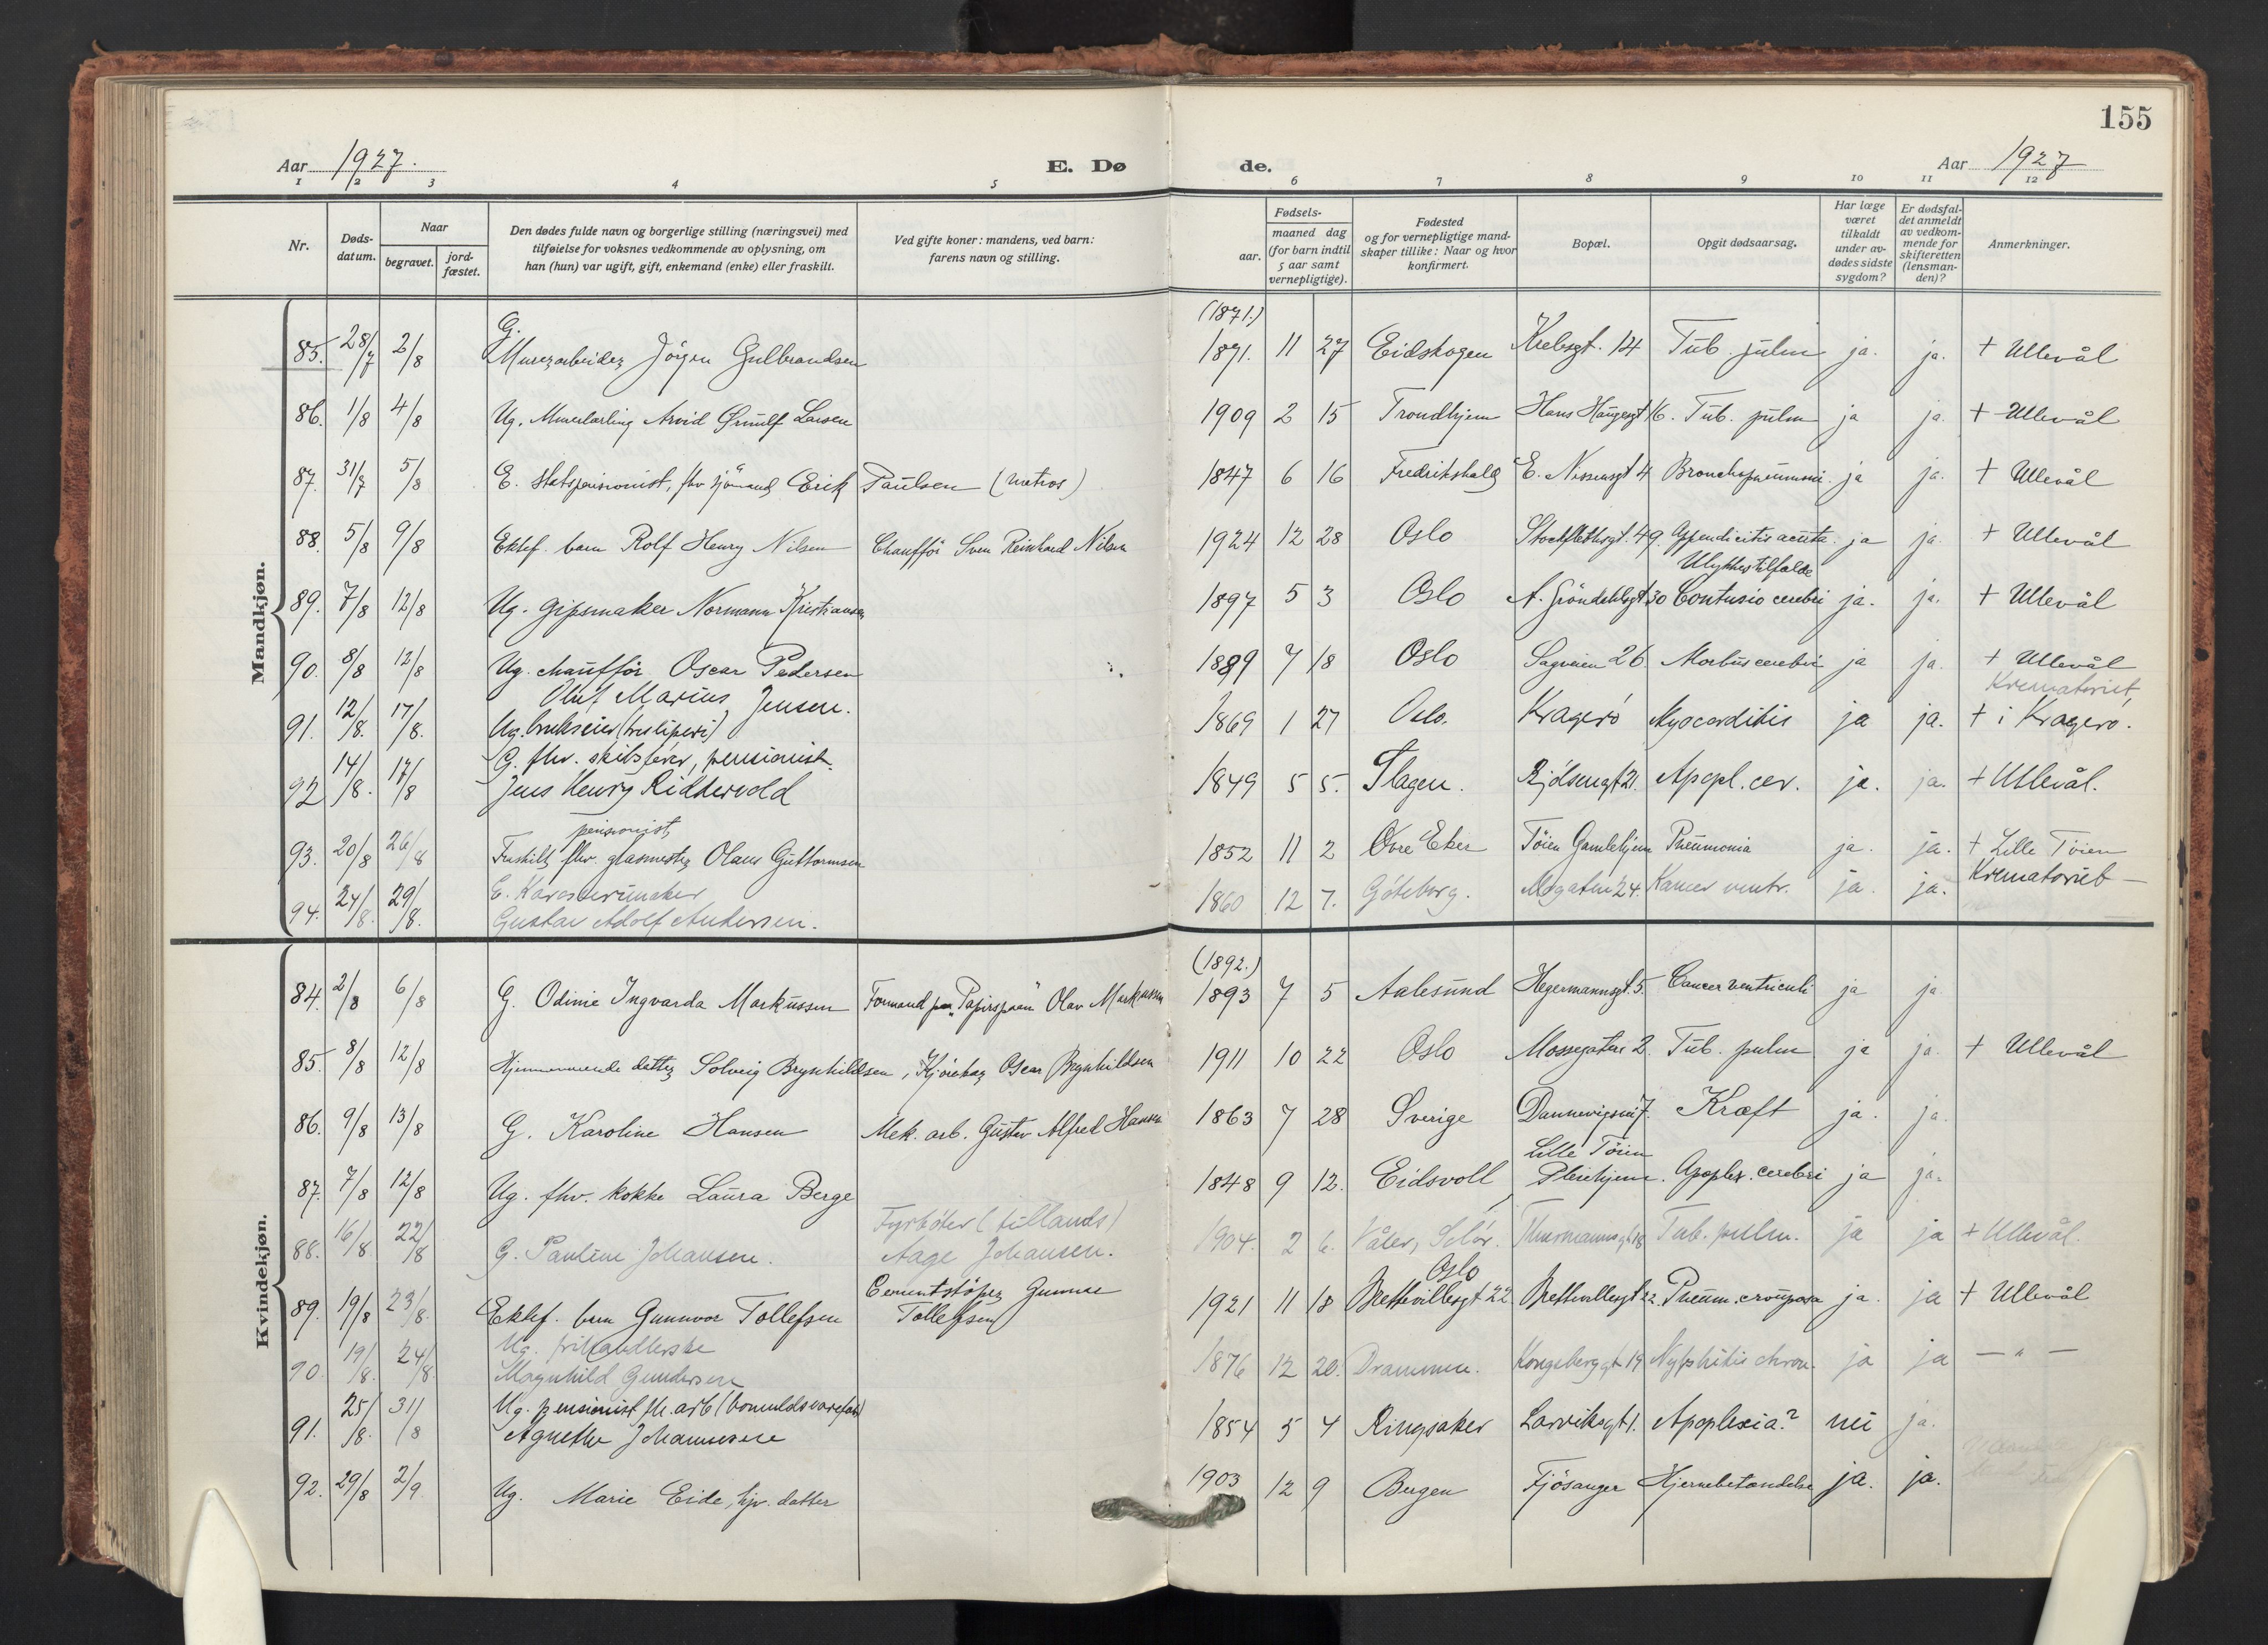 155
Aar 1927. E. Dø de. Aar 1927
1 2 3 4 5 6 7 8 9 10 11 12
Nr.
Døds-
datum.
Naar
begravet.
jord-
fæstet.
Den dødes fulde navn og borgerlige stilling (næringsvei) med
tilføielse for voksnes vedkommende av oplysning, om
han (hun) var ugift, gift, enkemand (enke) eller fraskilt.
Ved gifte koner: mandens, ved barn:
farens navn og stilling.
Fødsels-
aar.
maaned dag
(for barn indtil
5 aar samt
vernepligtige).
Fødested
og for vernepligtige mand-
skaper tillike: Naar og hvor
konfirmert.
Bopæl.
Opgit dødsaarsag.
Har læge
været
tilkaldt
under av-
dødes sidste
sygdom?
Er dødsfal-
det anmeldt
av vedkom-
mende for
skifteretten
(lensman-
den)?
Anmerkninger.
Mandkjøn.
G. (1871.)
85. 28/7 2/8 Murerarbeider Jörgen Gulbrandsen 1871. 11 27 Eidskogen Krebsgt. 14 Tub. pulm ja. ja. + Ullevål
86. 1/8 4/8 Ug. Murerlærling Arvid Ørnulf Larsen 1909 2 15 Trondhjem Hans Haugesgt 16. Tub. pulm ja ja. + Ullevål
87. 31/7 5/8 E. statspensionist, fhv sjömand Erik Paulsen (matros) 1847 6 16 Fredrikshald E. Nissensgt 4 Bronchopneumoni. ja ja. + Ullevål
88. 5/8 9/8 Ektef. barn Rolf Henry Nilsen Chaufför Sven Reinhard Nilsen 1924 12 28 Oslo Stockflethsgt. 49. Appendicitis acuta. ja ja. + Ullevål
Ulykkestilfælde
89. 7/8 12/8 Ug. gipsmaker Normann Kristiansen 1897 5 3 Oslo A. Gröndahlsgt 30 Contusio cerebri ja. ja. + Ullevål
90. 8/8 12/8 Ug. chaufför Oscar Pedersen 1889 7 18 Oslo Sagveien 26 Morbus cerebri ja ja. + Ullevål
Krematoriet,
Oluf Marius Jensen.
91. 12/8. 17/8. Ug. brukseier (tresliperi) 1869 1 27 Oslo. Kragerö Myocarditis ja ja. + i Kragerö.
G. fhv. skibsförer, pensionist.
92 14/8. 17/8 Jens Henry Riddervold 1849 5 5. Slagen. Kjölsengt 21. Apopl. cer. ja. ja. + Ullevål.
pensionist,
93. 20/8 26/8 Fraskilt fhv. glasmester Olaus Guttormsen 1852 11 2 Øvre Eker Töien Gamlehjem Pneumonia ja. ja. + Lille Töien
E. Karosserimaker Krematoriet —
94. 24/8. 29/8. Gustav Adolf Andersen. 1860 12 7. Göteborg. Mogaten 24. Kancer ventr. ja. ja.
Kvindekjøn.
(1892.)
84. 2/8 6/8 G. Odinie Ingvarda Markussen Formand paa "Papirspaan" Olav Markussen 1893 7 5 Aalesund Hegermannsgt. 5. Cancer ventriculi ja ja
85. 8/8 12/8 Hjemmeværende datter Solveig Brynhildsen, Kjörekar Oscar Brynhildsen 1911 10 22 Oslo Mossegaten 2. Tub. pulm ja ja. + Ullevål
86. 9/8 13/8 G. Karoline Hansen Mek. arb. Gustav Alfred Hansen 1863 7 28 Sverige Dannevigsvei 7. Kræft ja. ja.
Lille Töien
87. 7/8 12/8 Ug. fhv. kokke Laura Berge 1848 9 12. Eidsvoll Pleiehjem. Apoplex. cerebri ja ja.
Fyrböter (tillands)
88. 16/8. 22/8 G. Pauline Johansen. Aage Johansen. 1904. 2 6. Våler, Solör. Thurmannsgt 18 Tub. pulm. ja ja + Ullevål.
Cementstöper Gunnar Oslo
89. 19/8 23/8. Ektef. barn Gunnvor Tollefsen Tollefsen 1921 11 18 Brettevillesgt 22 Brettevillesgt 22. Pneum. crouposa ja. ja + Ullevål
Ug. frihandlerske
90. 19/8. 24/8. Magnhild Gundersen 1876 12 20. Drammen. Kongsberggt 19 Nephritis chron. ja ja — " —
Ug. pensionist fh. arb (bomuldsvarefab)
91. 25/8. 31/8 Agnethe Johannesen 1854 5 4 Ringsaker Larviksgt 1. Apoplexia? nei ja.
92. 29/8 2/9 Ug. Marie Eide, hjv. datter 1903 12 9 Bergen Fjösanger Hjernebetændelse ja. ja.